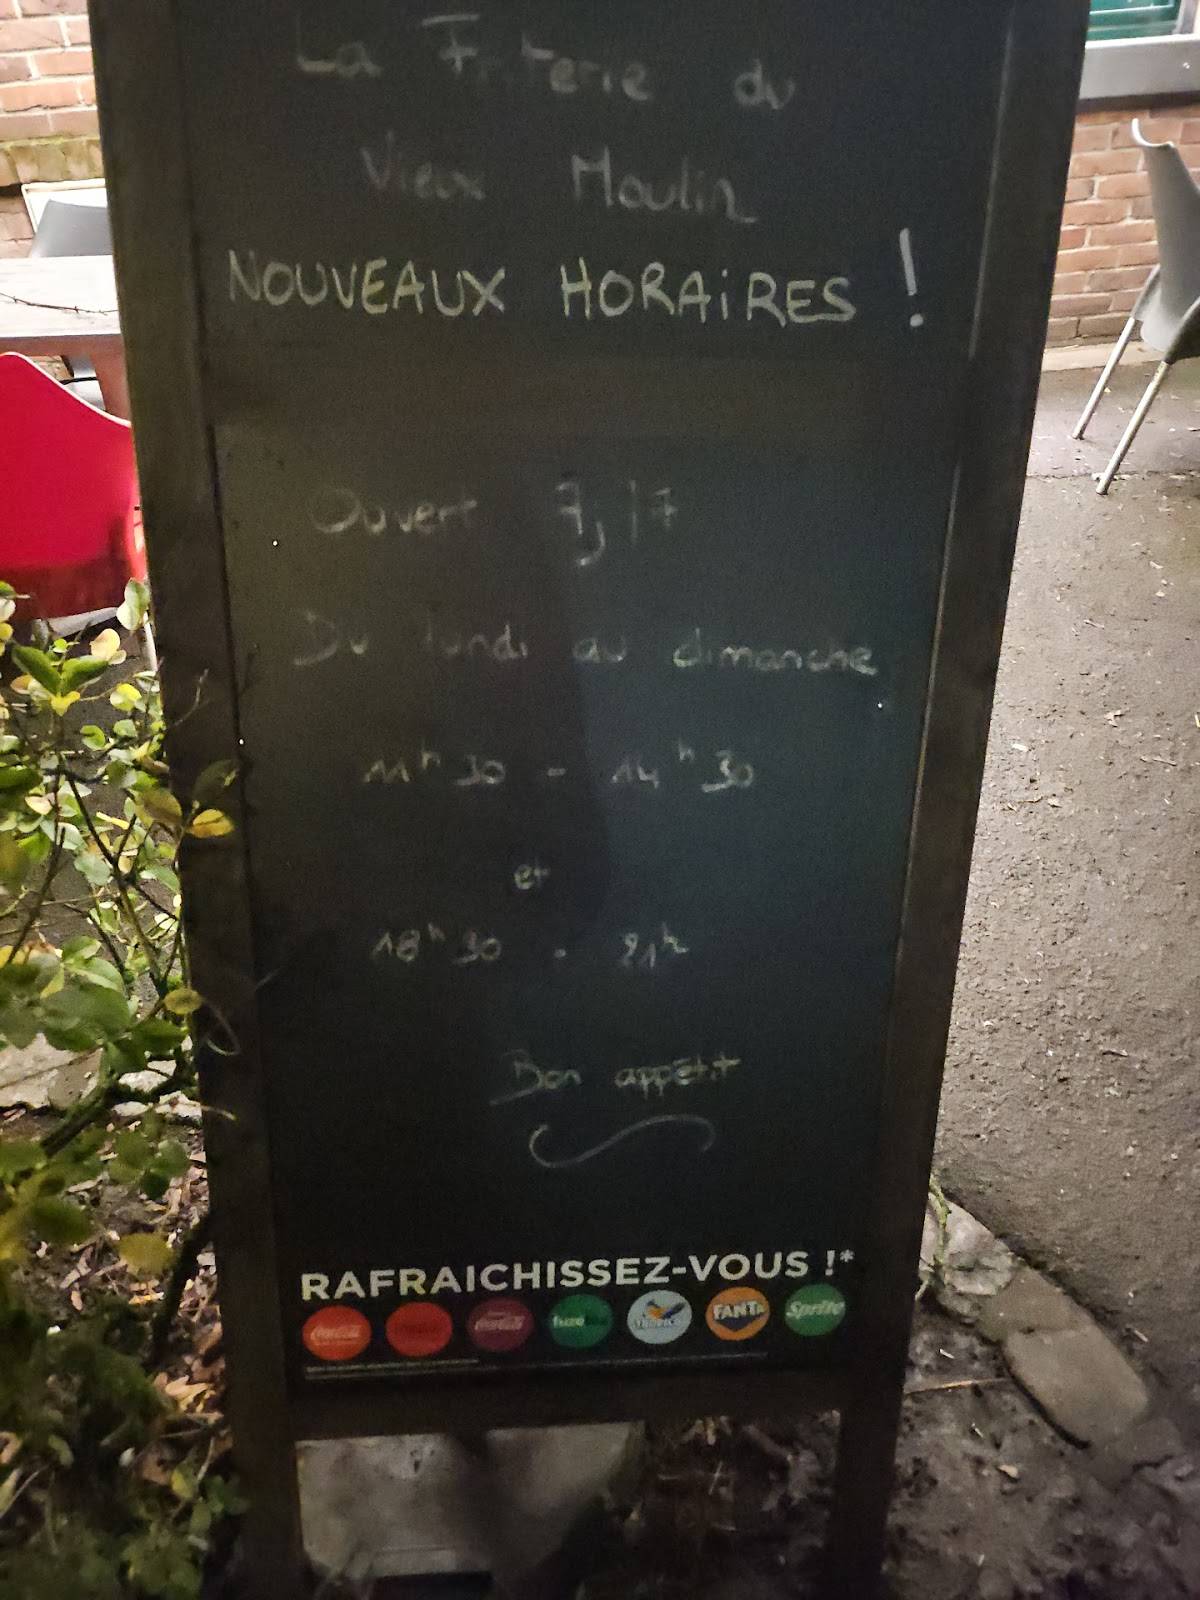 La Friterie du
Vieux Moulin
NOUVEAUX HORAiRES !
Ouvert 7j/7
Du lundi au dimanche
11h30 - 14h30
et
18h30 - 21h
Bon appétit
RAFRAICHISSEZ-VOUS !*
Coca-Cola fuze tea TROPICO FANTA Sprite